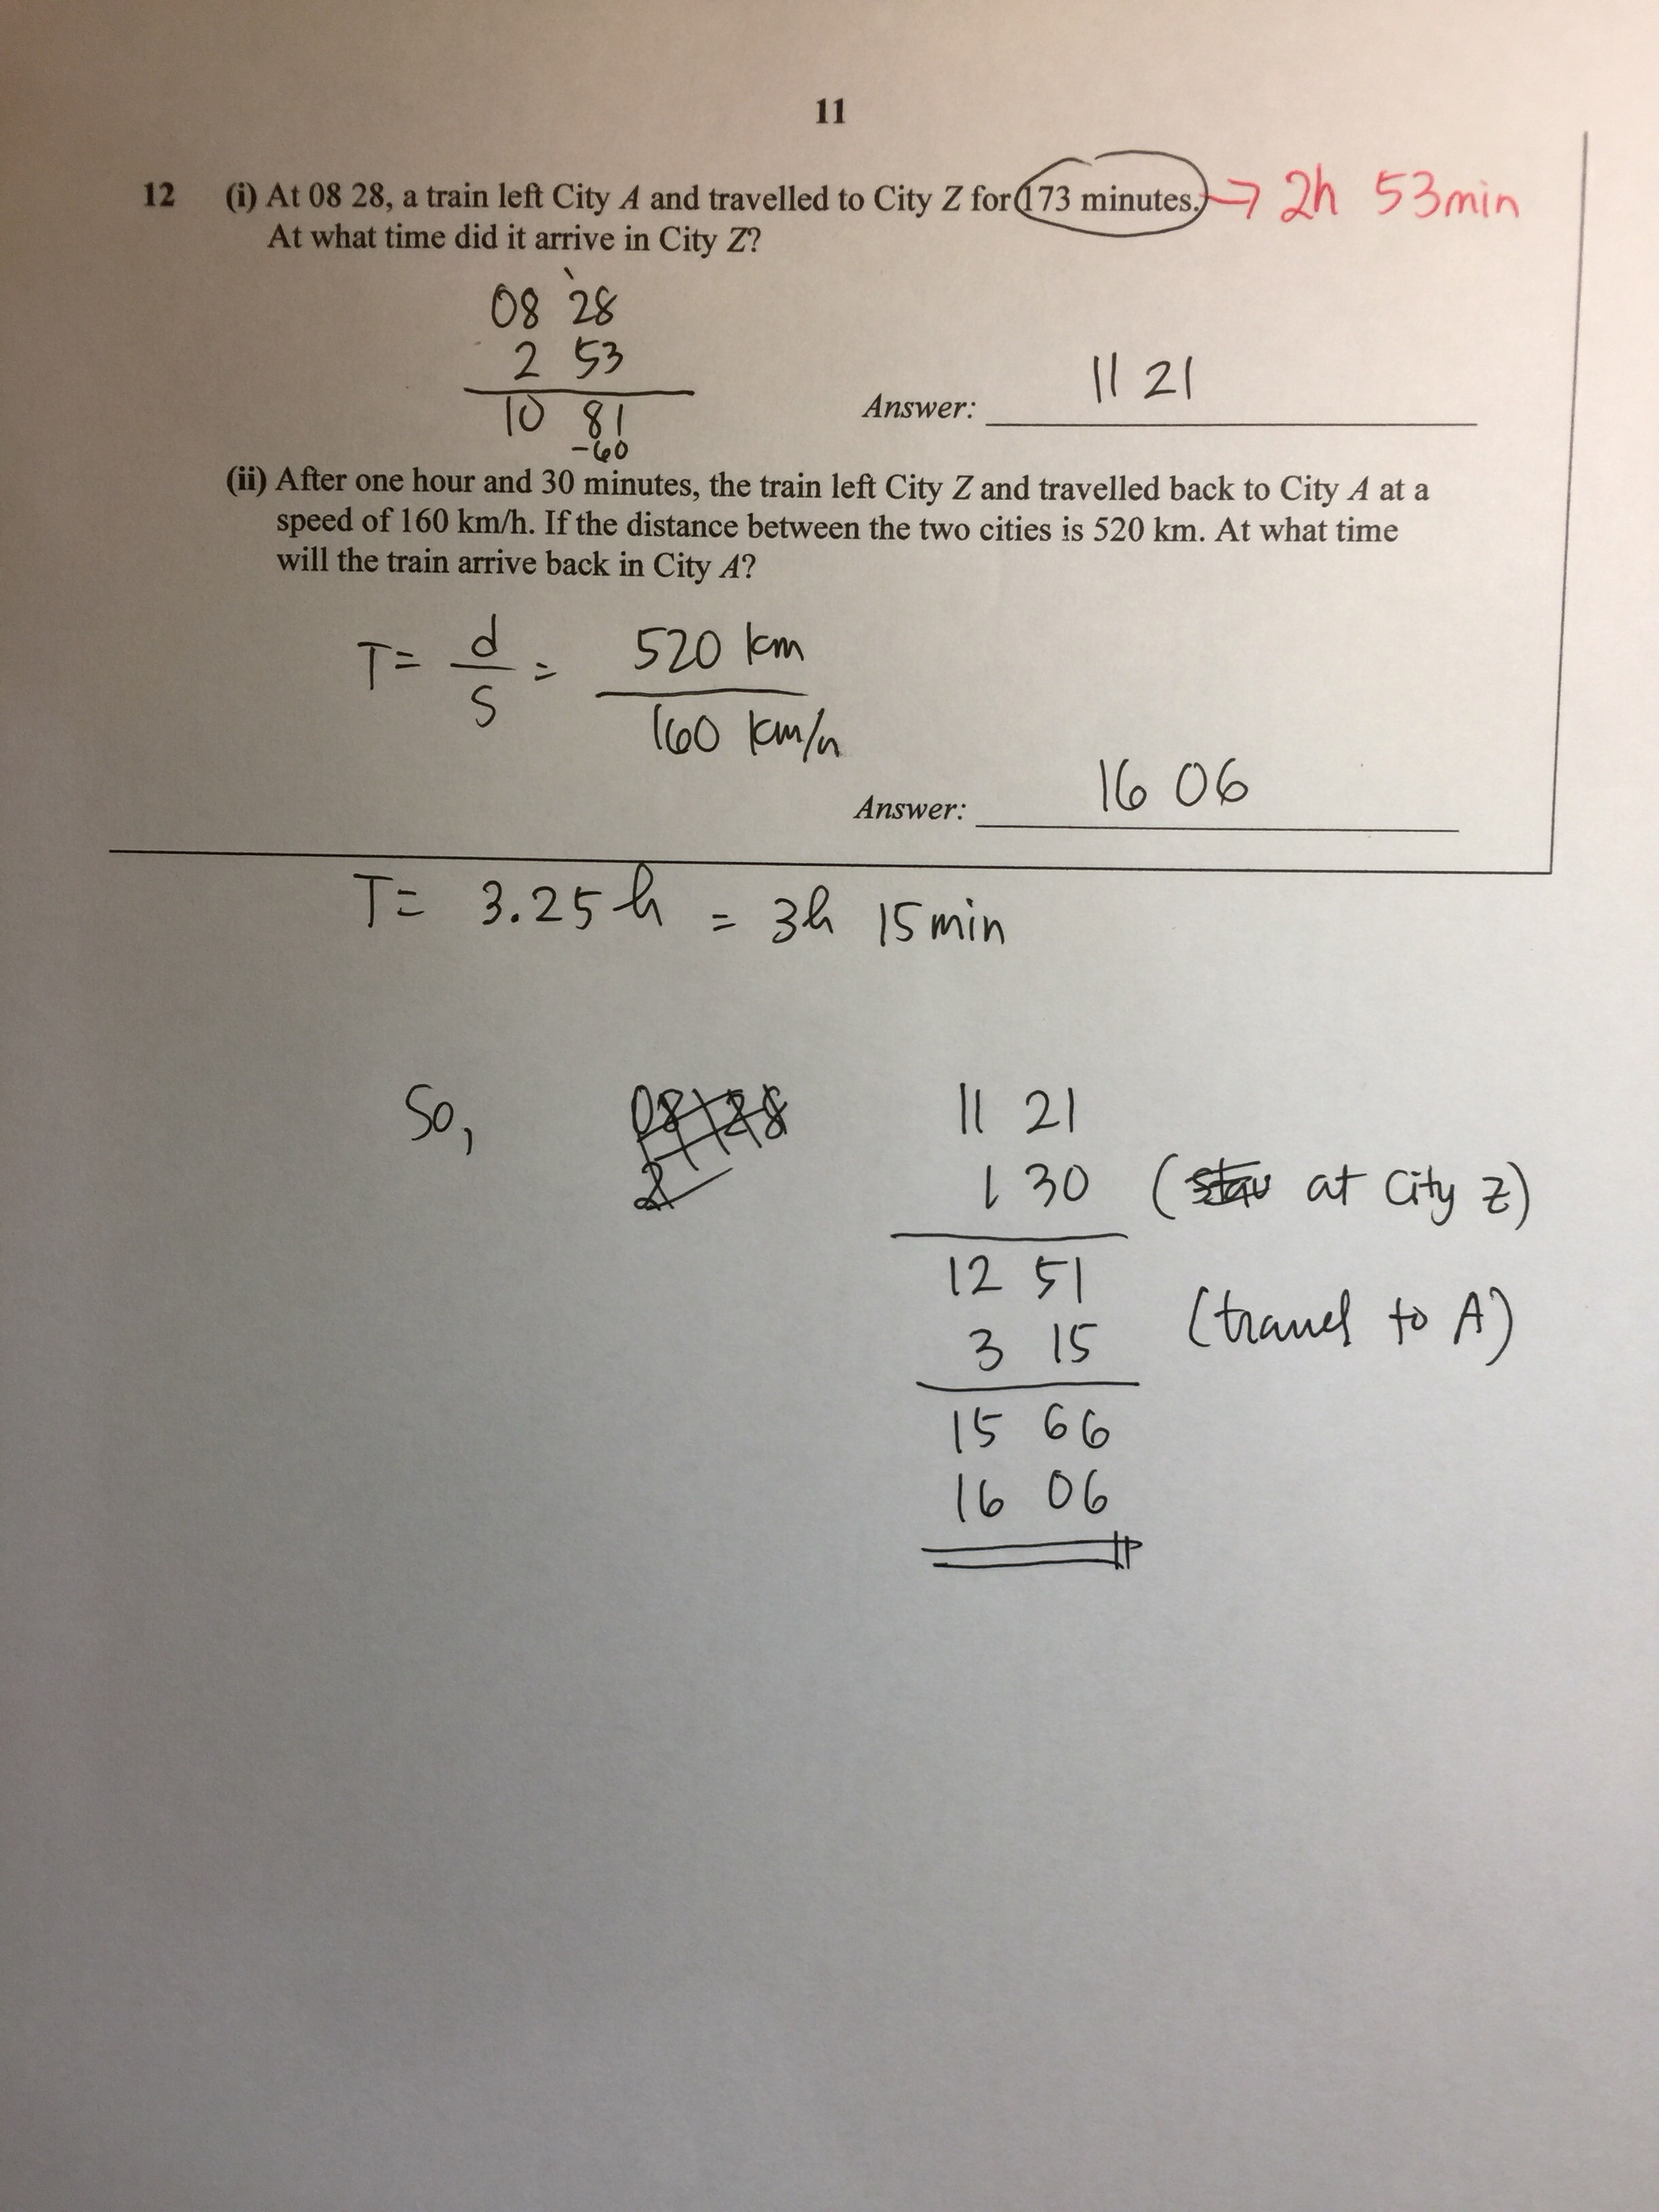 11
12 (i) At 08 28, a train left City A and travelled to City Z for 173 minutes. → 2h 53min
At what time did it arrive in City Z?
08 28
2 53
10 81
-60
Answer: 11 21
(ii) After one hour and 30 minutes, the train left City Z and travelled back to City A at a
speed of 160 km/h. If the distance between the two cities is 520 km. At what time
will the train arrive back in City A?
T = d/s = 520 km / 160 km/h
Answer: 16 06
T = 3.25 h = 3h 15min
So, 08 28 11 21
2
1 30 (stay at City Z)
12 51
3 15 (travel to A)
15 66
16 06